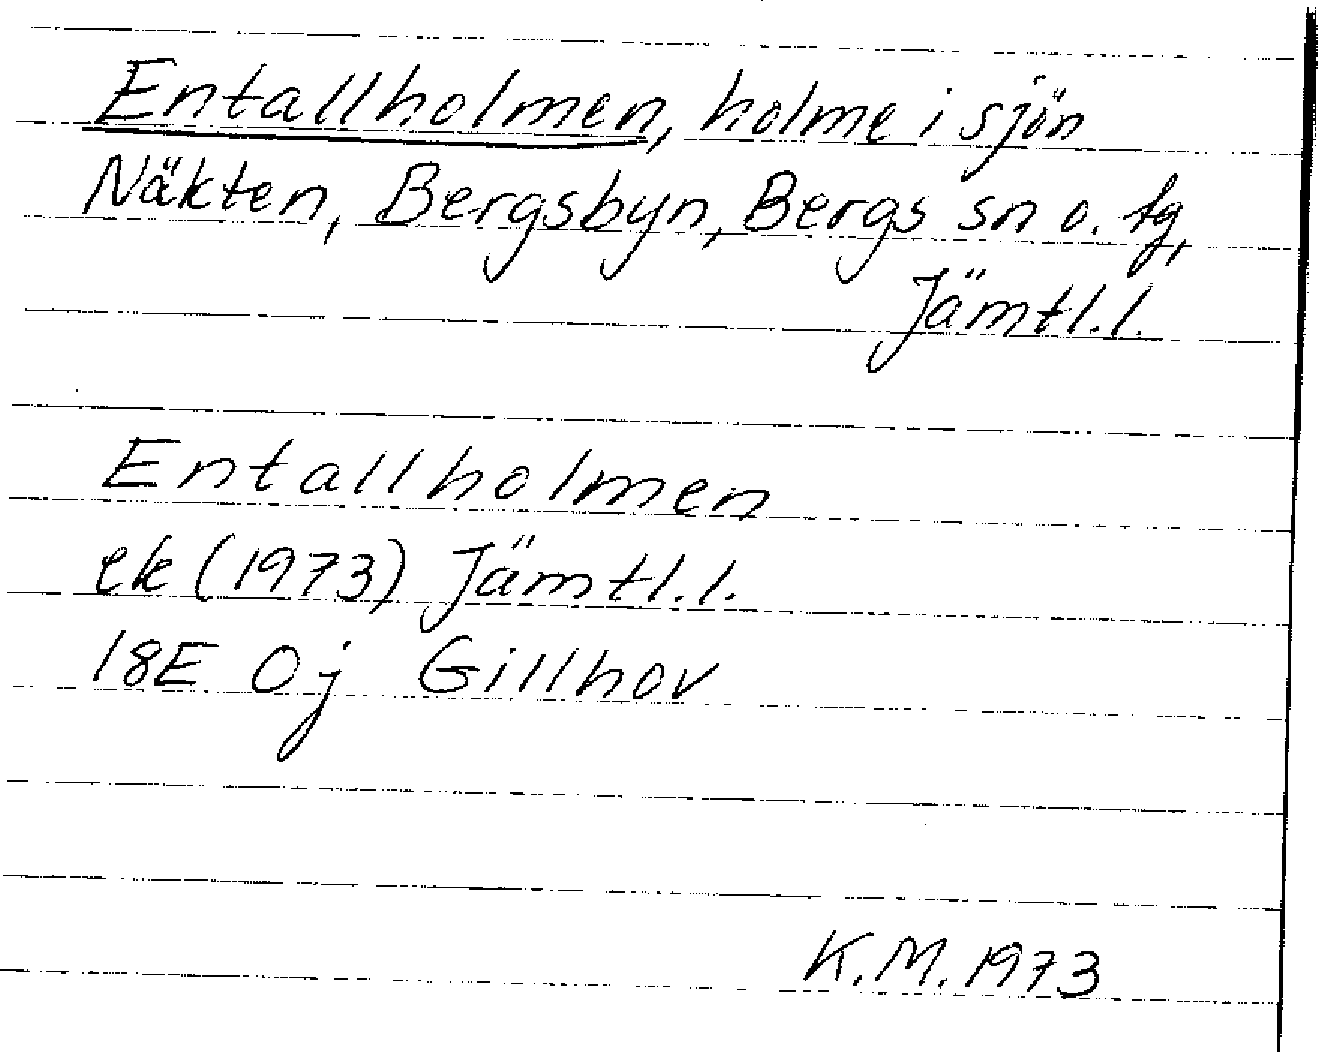 Entallholmen, holme i sjön
Näkten, Bergsbyn, Bergs sn o. tg,
Jämtl.l.
Entallholmen
ek (1973) Jämtl.l.
18E 0j Gillhov
K.M. 1973